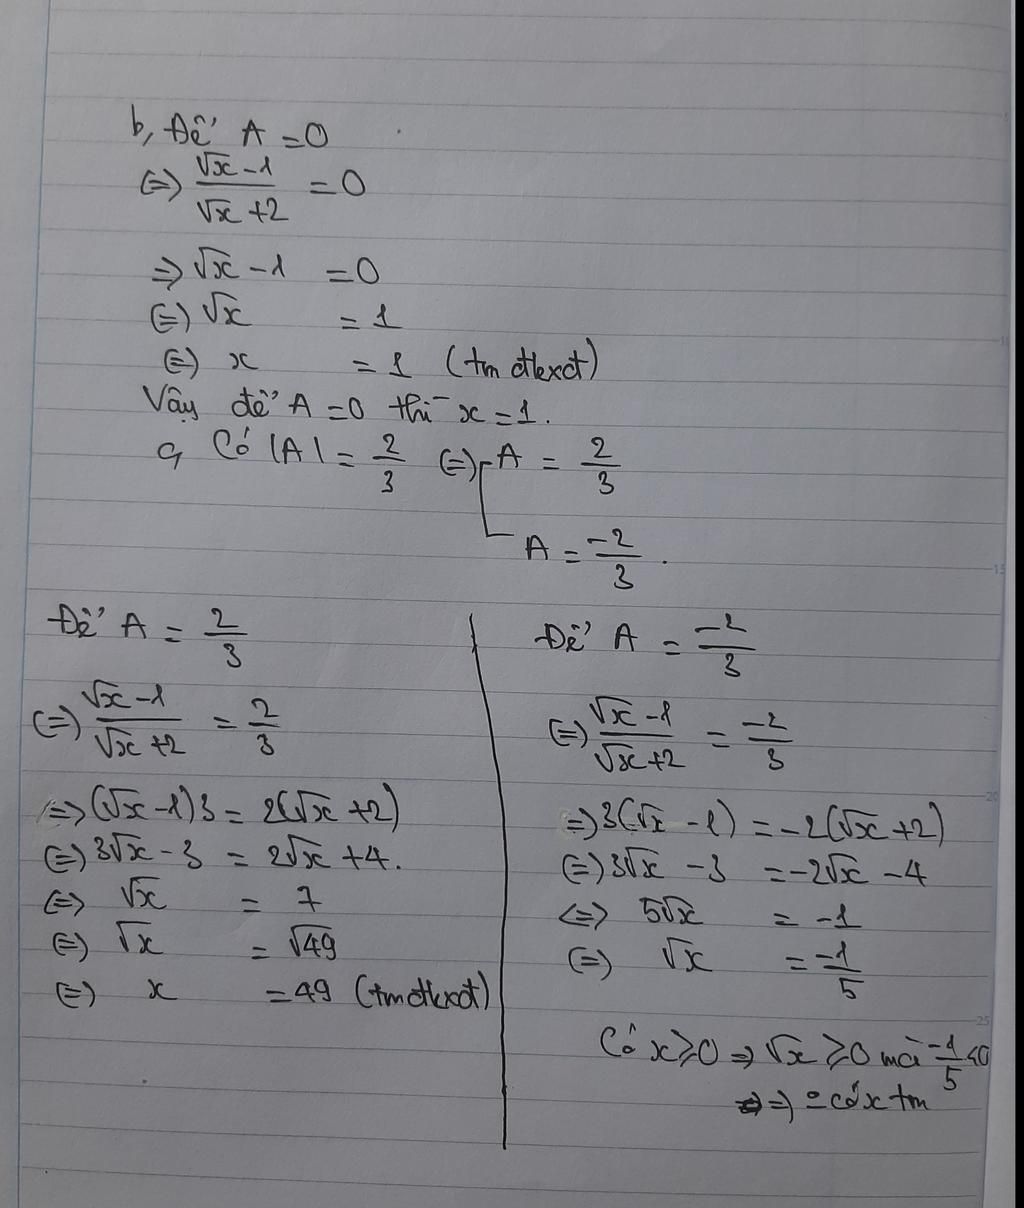 b, Để A = 0
(=) √x - 1 / √x + 2 = 0
=> √x - 1 = 0
(=) √x = 1
(=) x = 1 (tm đkxđ)
Vậy để A = 0 thì x = 1.
c, Có |A| = 2/3 (=) [ A = 2/3
A = -2/3 .
Để A = 2/3
(=) √x - 1 / √x + 2 = 2/3
=> (√x - 1)3 = 2(√x + 2)
(=) 3√x - 3 = 2√x + 4.
(=) √x = 7
(=) √x = √49
(=) x = 49 (tm đkxđ)
Để A = -2/3
(=) √x - 1 / √x + 2 = -2/3
=> 3(√x - 1) = -2(√x + 2)
(=) 3√x - 3 = -2√x - 4
<=> 5√x = -1
(=) √x = -1/5
Có x ≥ 0 => √x ≥ 0 mà -1/5 < 0
=> có x tm
15
20
25